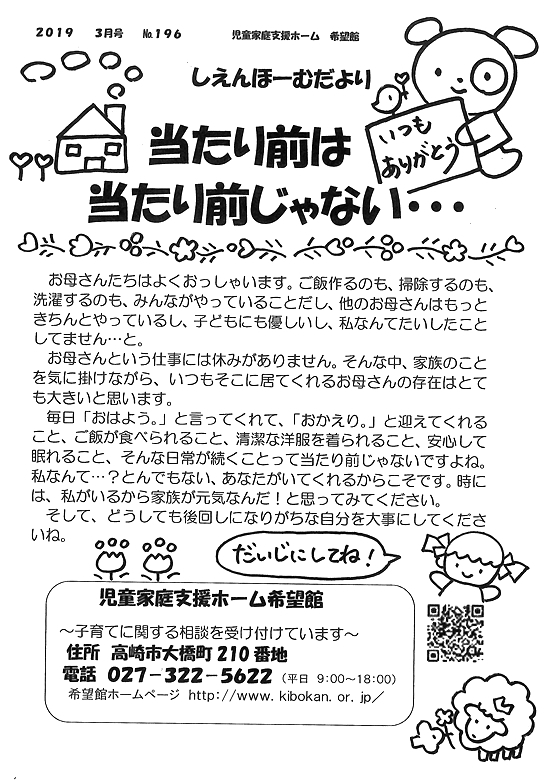 2019 3月号 No.196 児童家庭支援ホーム 希望館
しえんほーむだより
いつも
ありがとう
当たり前は
当たり前じゃない・・・
お母さんたちはよくおっしゃいます。ご飯作るのも、掃除するのも、
洗濯するのも、みんながやっていることだし、他のお母さんはもっと
きちんとやっているし、子どもにも優しいし、私なんてたいしたこと
してません…と。
お母さんという仕事には休みがありません。そんな中、家族のこと
を気に掛けながら、いつもそこに居てくれるお母さんの存在はとて
も大きいと思います。
毎日「おはよう。」と言ってくれて、「おかえり。」と迎えてくれる
こと、ご飯が食べられること、清潔な洋服を着られること、安心して
眠れること、そんな日常が続くことって当たり前じゃないですよね。
私なんて…？とんでもない、あなたがいてくれるからこそです。時に
は、私がいるから家族が元気なんだ！と思ってみてください。
そして、どうしても後回しになりがちな自分を大事にしてくださ
いね。
だいじにしてね！
児童家庭支援ホーム希望館
～子育てに関する相談を受け付けています～
住所 高崎市大橋町210番地
電話 027－322－5622（平日 9:00～18:00）
希望館ホームページ http://www.kibokan.or.jp/